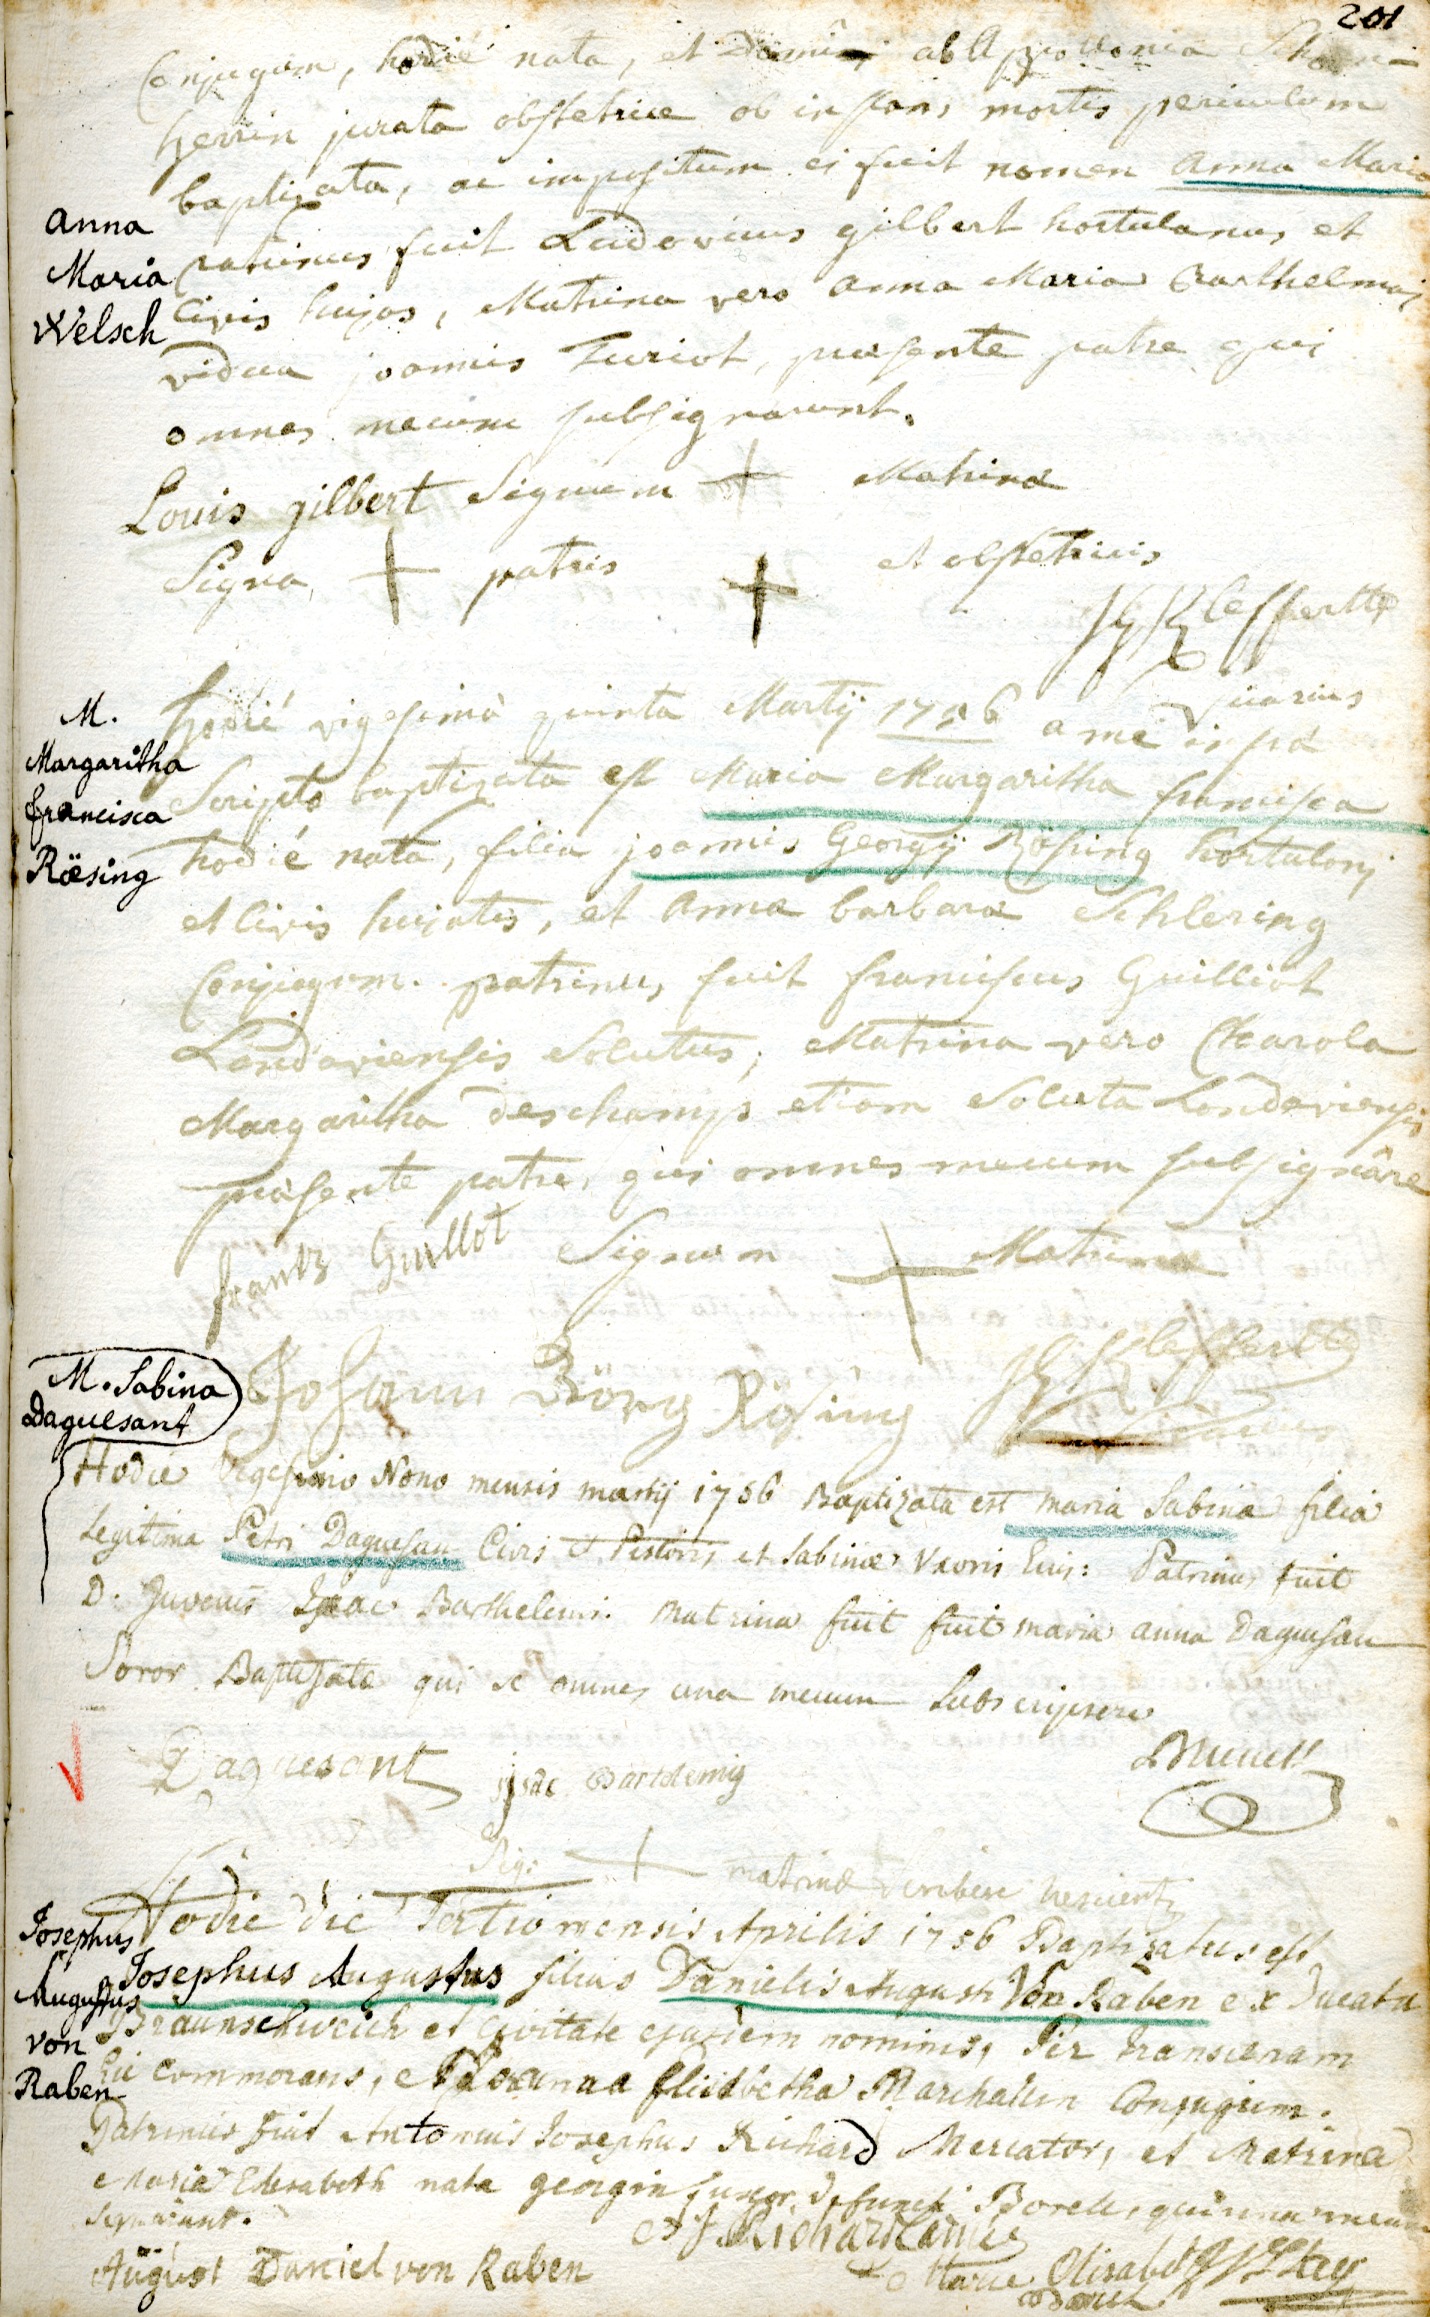 201
Conjugum, hodié nata, et Domi ab Appollonia
herrin jurata obstetrice ob instans mortis periculum
baptizata, ac impositum ei fuit nomen Anna Maria
Anna
Maria
Welsch
patrinus fuit Ludovicus gilbert hortulanus et
Civis hujas, Matrina vero Anna Maria Barthelmaj
vidua joannis Turiot, præsente patre qui
omnes mecum subsignarunt.
Louis gilbert Signum + Matrinæ
Signa + patris + et obstetricis
Kleffertt
vicarius
M.
Margaritha
francisca
Rœsing
hodié vigesimâ quinta Martij 1756 a me infra
Scripto baptizata est Maria Margaritha francisca
hodié nata, filia joannis Georgij Rösing hortulanj
et Civis hujatis, et Annæ barbaræ Schlering
Conjugum. patrinus fuit franciscus Guilliot
Landaviensis Solutus, Matrina vero Charola
Margaritha deschamps etiam Soluta Landaviensis
præsente patre, qui omnes mecum subsignâre
frantz Guillot Signum + Matrinæ
Johann Görg Rösing Kleffertt
vicarius
M. Sabina
Daguesant
Hodie Vigesimo Nono mensis martij 1756 Baptizata est maria Sabina filia
Legitima Petri Daguesan Civis et Pistoris et Sabinæ Uxoris Eius: Patrinus fuit
D. Juvenis Isaac Barthelemi. Matrina fuit fuit maria anna Daguesan
Soror Baptizatæ qui se omnes una mecum Subscripsere
Daguesant isac Bartelemy
Sig: + matrinæ scribere nescientis
Josephus
Augustus
von
Raben
Hodie die Tertio mensis Aprilis 1756 Baptizatus est
Josephus Augustus filius Danielis Augusti Von Raben ex Ducatu
Braunschweich et Civitate ejusdem nominis, Per transennam
hic commorans, et Joanna Elisabetha Marchallin Conjugum.
Patrinus fuit Antonius Josephus Richard Mercator, et Matrina
Maria Elisabeth nata georgin uxor defuncti Borell, qui una mecum
signarunt.
A J. Richard
August Daniel von Raben Marie Elisabet
Borell